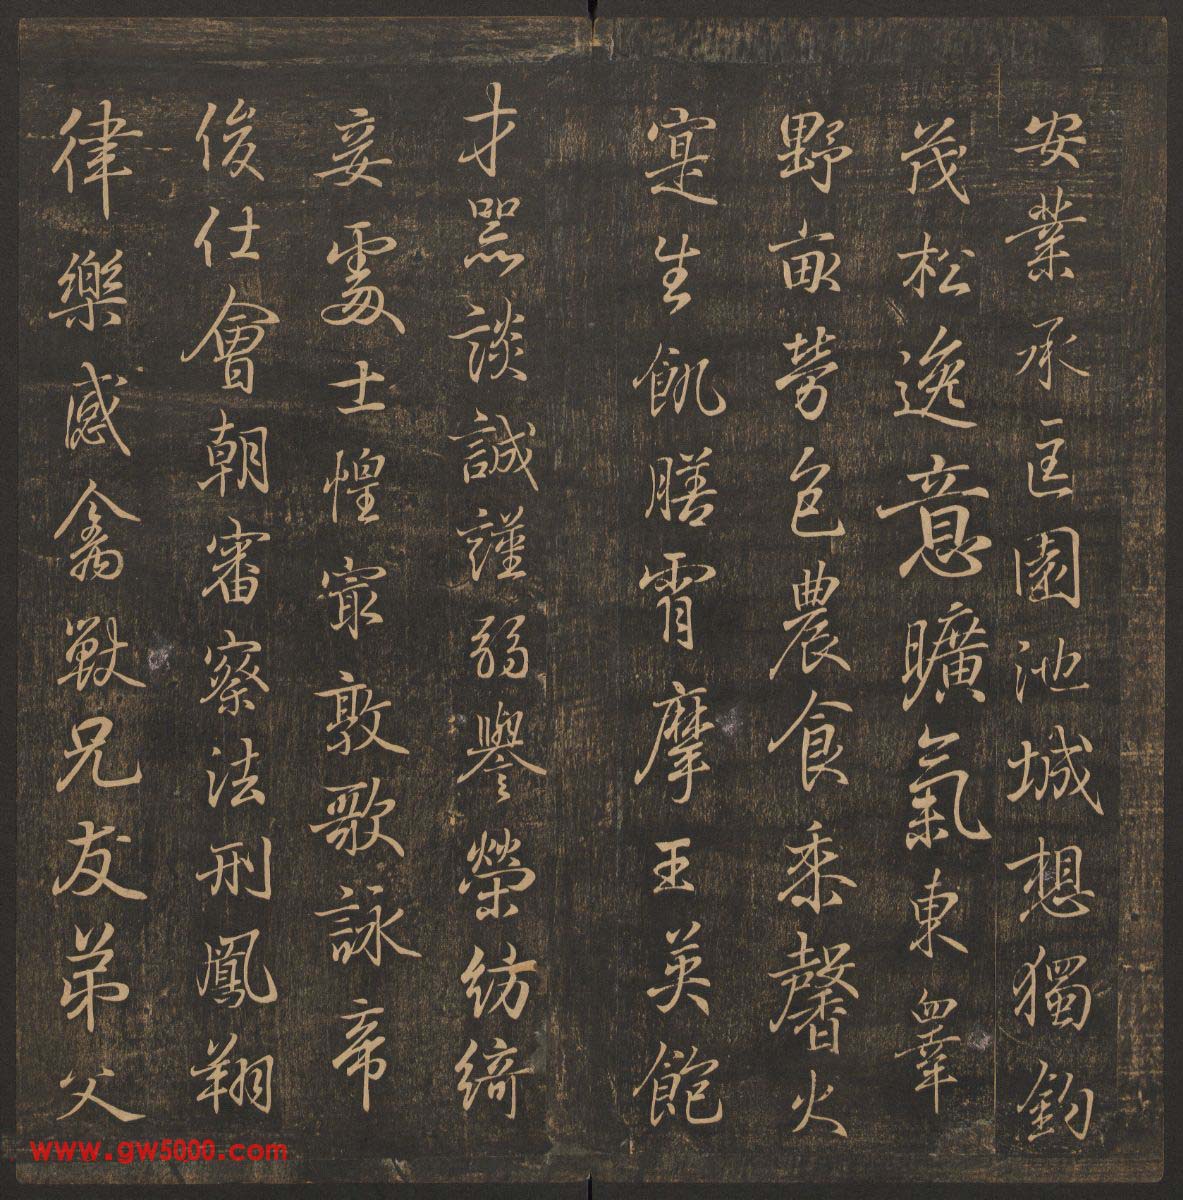 安業承匡園池城想獨鈞
茂松逸意曠氣東皋
野畝勞包農食黍馨火
寔生飢膳霄摩王英飽
才器談誠謹弱譽榮紡綺
妾處士惶寂敦歌詠帝
俊仕會朝審察法刑鳳翔
律樂感禽獸兄友弟父
www.gw5000.com